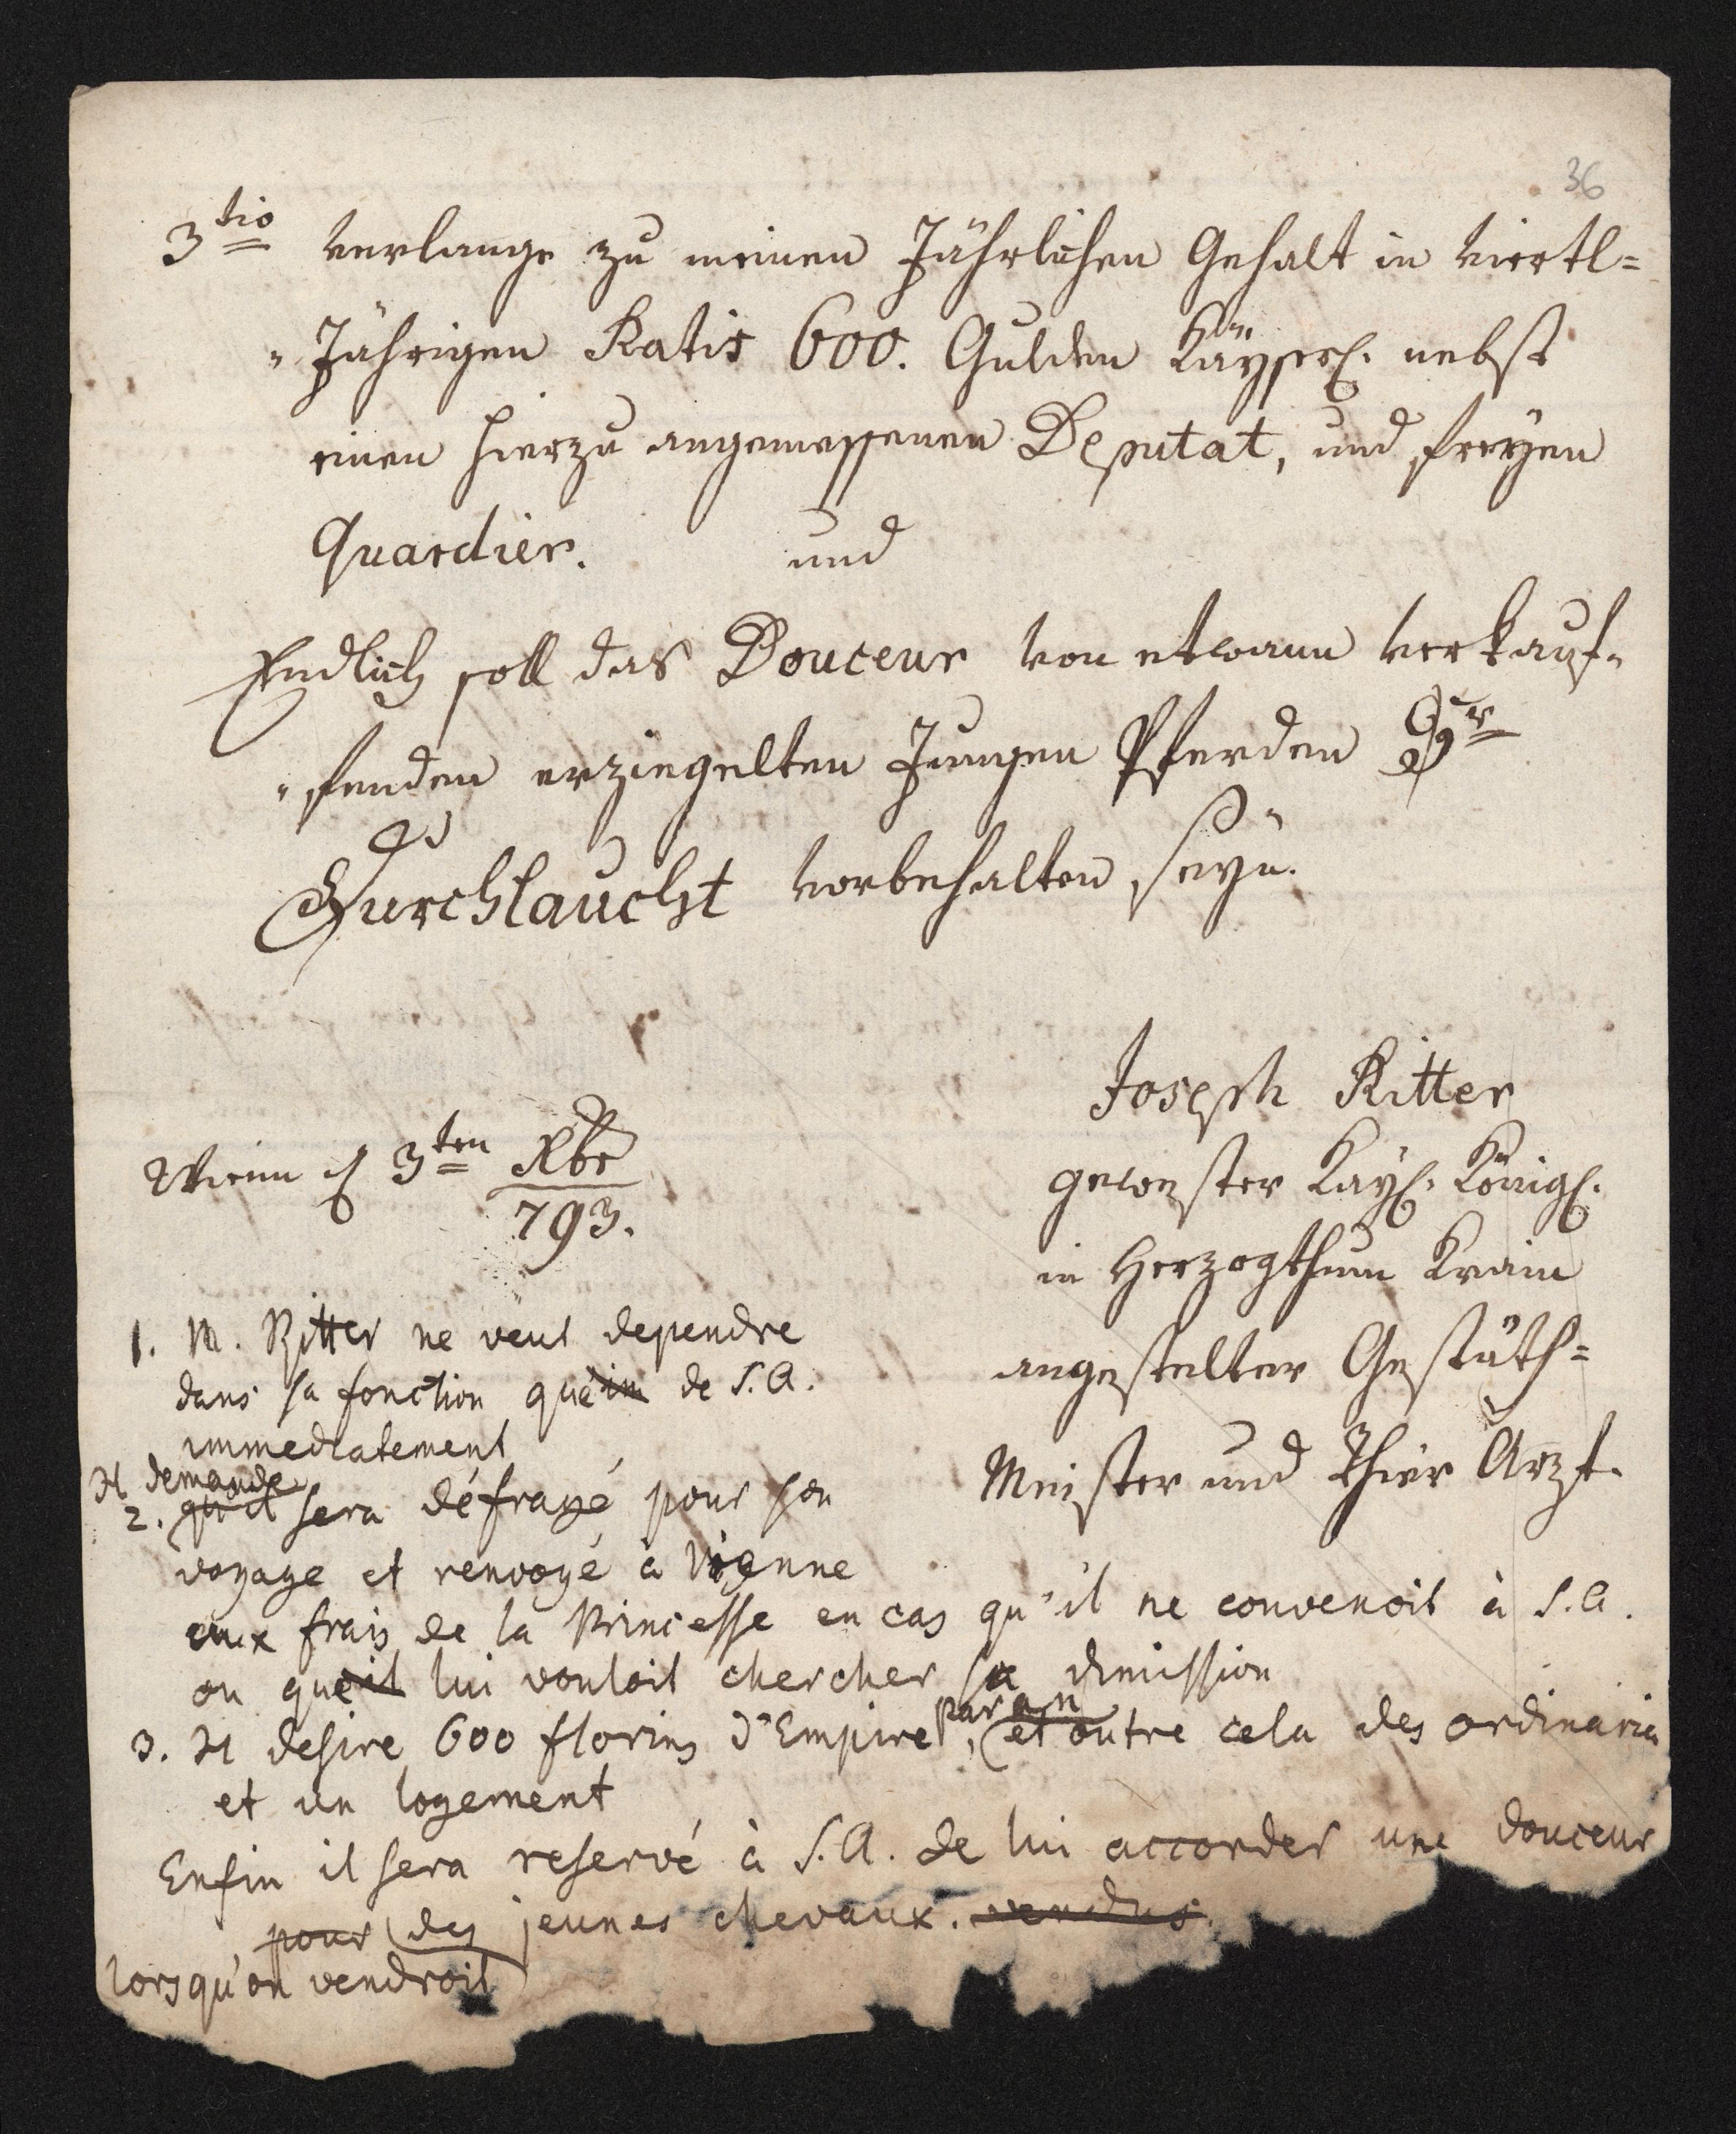 36
3tio verlange zu meinen Jährlichen Gehalt in viertl=
"Jährigen Ratis 600. Gulden Käyserl. nebst
einen hierzu angemessenen Deputat, und freyen
Quardier. und
Endlich soll das Douceur von etwann verkauf=
"fenden erziegelten Jungen Pferden Sr
Durchlaucht vorbehalten seyn.
Joseph Ritter
gewester Kayl. Königl.
in Herzogthum Krain
angestelter Gestüth=
Meister und Thier Arzt.
Wienn d 3ten Xbr
793.
1. M. Ritter ne veut dependre
dans sa fonction que de S.A.
immediatement
Il demande
2. qu'il sera défrayé pour son
voyage et renvoyé à Vienne
aux frais de la Princesse en cas qu'il ne convenoit à S.A.
ou qu'il lui vouloit chercher sa dimission
par an
3. Il desire 600 florins d'Empire, et outre cela des ordinaria
et un logement
Enfin il sera reservé à S.A. de lui accorder une douceur
pour des jeunes chevaux. vendus.
lorsqu'on vendroit